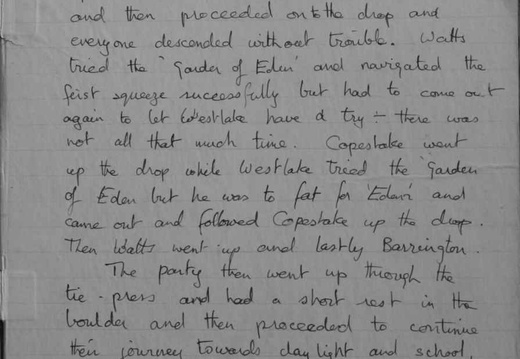 and then proceeded onto the drop and
everyone descended without trouble. Watts
tried the 'Garden of Eden' and navigated the
feist squeeze successfully but had to come out
again to let Westlake have a try - there was
not all that much time. Copestake went
up the drop while Westlake tried the 'Garden
of Eden but he was to fat for 'Eden' and
came out and followed Copestake up the drop.
Then Watts went up and lastly Barrington.
The party then went up through the
tie-press and had a short rest in the
boulder and then proceeded to continue
their journey towards daylight and school.